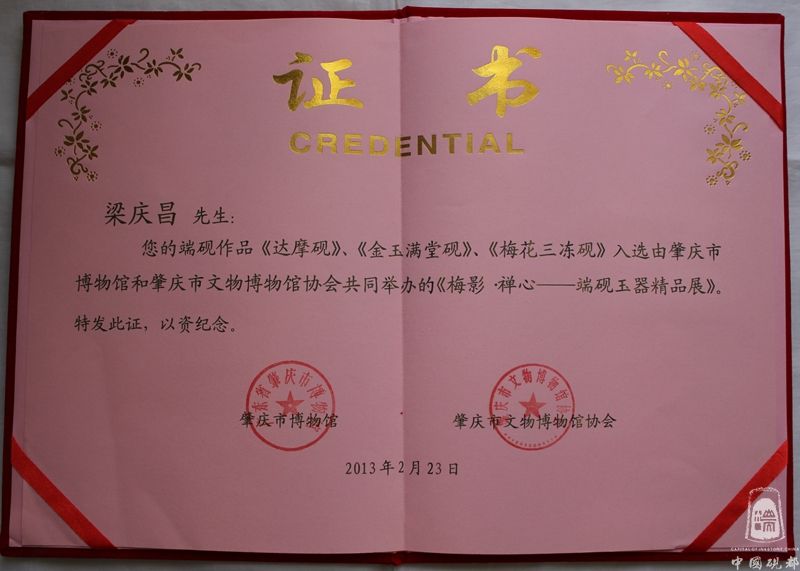 证 书
CREDENTIAL
梁庆昌 先生:
您的端砚作品《达摩砚》、《金玉满堂砚》、《梅花三冻砚》入选由肇庆市
博物馆和肇庆市文物博物馆协会共同举办的《梅影·禅心——端砚玉器精品展》。
特发此证，以资纪念。
肇庆市博物馆 肇庆市文物博物馆协会
2013年2月23日
CAPITAL OF INKSTONE, CHINA
中國硯都